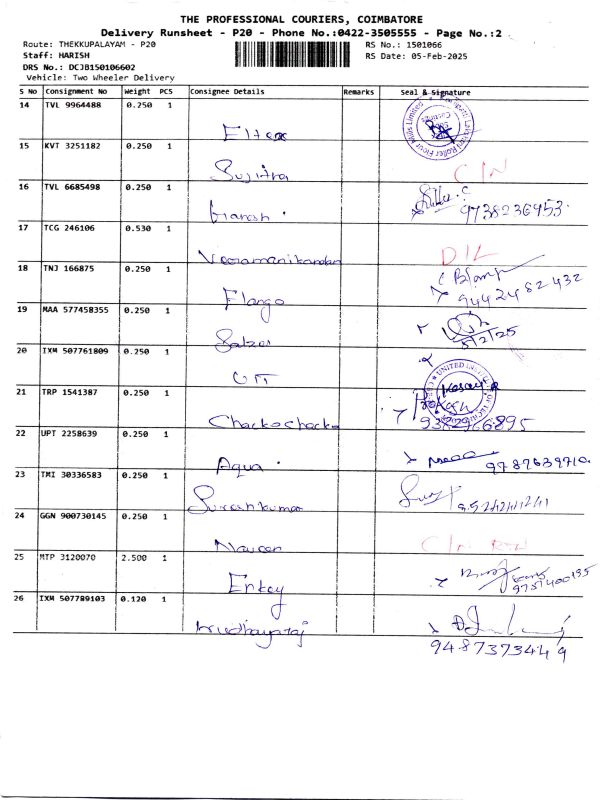 THE PROFESSIONAL COURIERS, COIMBATORE
Delivery Runsheet - P20 - Phone No.:0422-3505555 - Page No.:2
Route: THEKKUPALAYAM - P20 RS No.: 1501066
Staff: HARISH RS Date: 05-Feb-2025
DRS No.: DCJB150106602
Vehicle: Two Wheeler Delivery
S No Consignment No Weight PCS Consignee Details Remarks Seal & Signature
14 TVL 9964488 0.250 1
15 KVT 3251182 0.250 1
Sujitha C/N
16 TVL 6685498 0.250 1
Harish 9738236953
17 TCG 246106 0.530 1
Veeramanikandan D/L
18 TNJ 166875 0.250 1
Elango 9442482432
19 MAA 577458355 0.250 1
Salzer 5/2/25
20 IXM 507761809 0.250 1
UIT
21 TRP 1541387 0.250 1
Chackochacko
22 UPT 2258639 0.250 1
Aqua 9787639710
23 TMI 30336583 0.250 1
Sureshkumar
24 GGN 900730145 0.250 1
Naveen C/N
25 MTP 3120070 2.500 1
Enkey 9751400135
26 IXM 507789103 0.120 1
9487373449